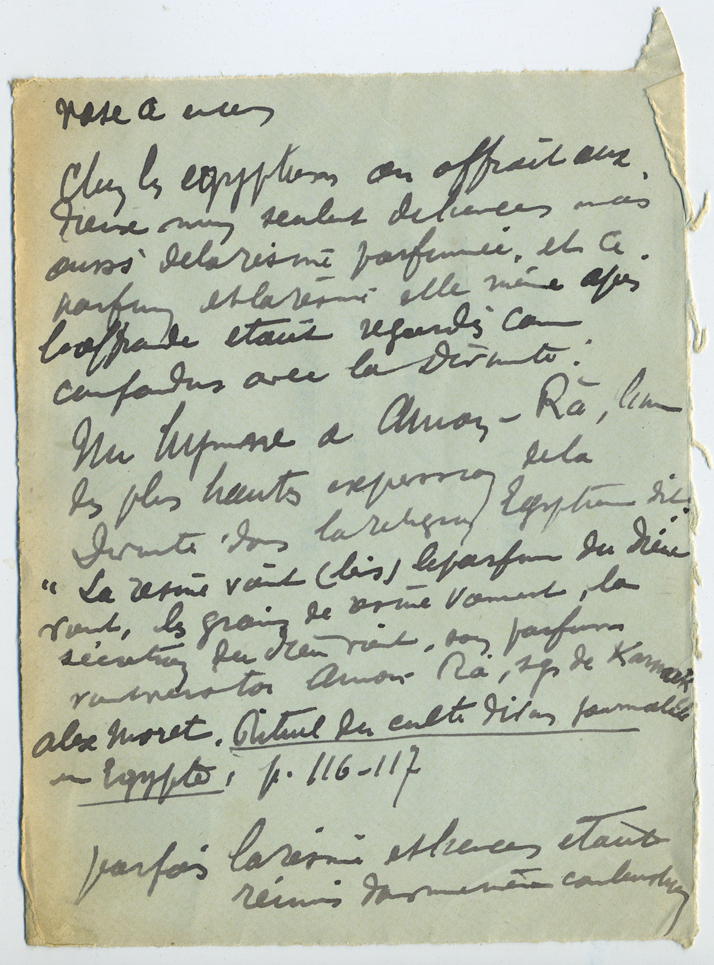 vase a encens
Chez les egyptiens on offrait aux
Dieux non seulent de l'encens mais
aussi de la résine parfumée, et ce
parfum et la résine elle même après
l'offrande etait regardés com
confondus avec la Divinité.
Un hymne a Amon-Râ, l'une
des plus hautes expression de la
Divinité dans la religion Egyptien dit:
"La resine vient (bis) le parfum du dieu
vient, les grains de resine viennent, la
sécretion du dieu vient, son parfum
vient vers toi Amon Râ, sgr de Karnak
alex Moret. Rituel du culte divin journalier
en Egypte, p. 116-117
parfois la résine et l'encens etait
réunis dans